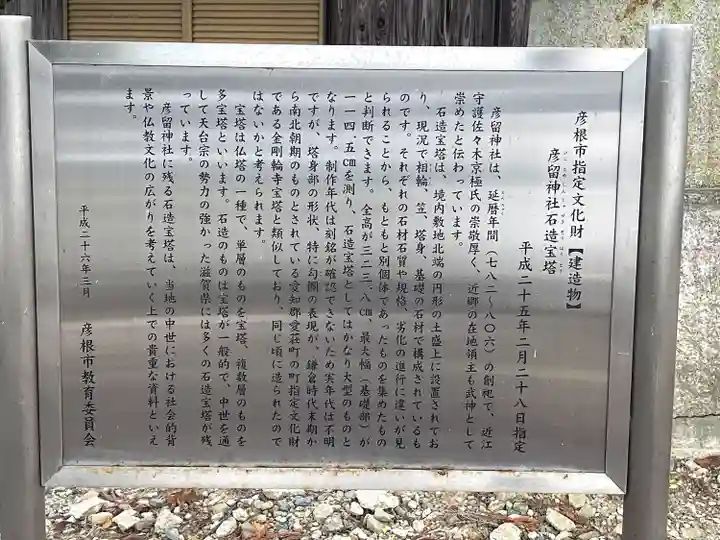 彦根市指定文化財【建造物】
彦留神社石造宝塔
平成二十五年二月二十八日指定
彦留神社は、延暦年間(七八二~八〇六)の創祀で、近江
守護佐々木京極氏の崇敬厚く、近郷の在地領主も武神として
崇めたと伝わっています。
石造宝塔は、境内敷地北端の円形の土盛上に設置されてお
り、現況で相輪、笠、塔身、基礎の石材で構成されているも
のです。それぞれの石材石質や規格、劣化の進行に違いが見
られることから、もともと別個体であったものを集めたもの
と判断できます。全高が三二三.八㎝、最大幅(基礎部)が
一一四.五㎝を測り、石造宝塔としてはかなり大型のものと
なります。制作年代は刻銘が確認できないため実年代は不明
ですが、塔身部の形状、特に勾欄の表現が、鎌倉時代末期か
ら南北朝期のものとされている愛知郡愛荘町の町指定文化財
である金剛輪寺宝塔と類似しており、同じ頃に造られたので
はないかと考えられます。
宝塔は仏塔の一種で、単層のものを宝塔、複数層のものを
多宝塔といいます。石造のものは宝塔が一般的で、中世を通
して天台宗の勢力の強かった滋賀県には多くの石造宝塔が残
っています。
彦留神社に残る石造宝塔は、当地の中世における社会的背
景や仏教文化の広がりを考えていく上での貴重な資料といえ
ます。
平成二十六年三月
彦根市教育委員会